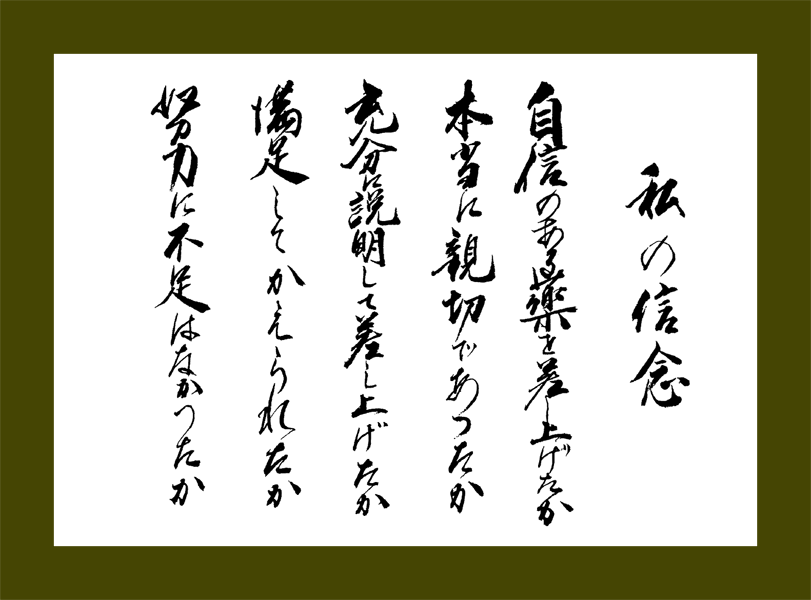 私の信念
自信のある薬を差し上げたか
本当に親切であつたか
充分に説明して差し上げたか
満足してかえられたか
努力に不足はなかつたか